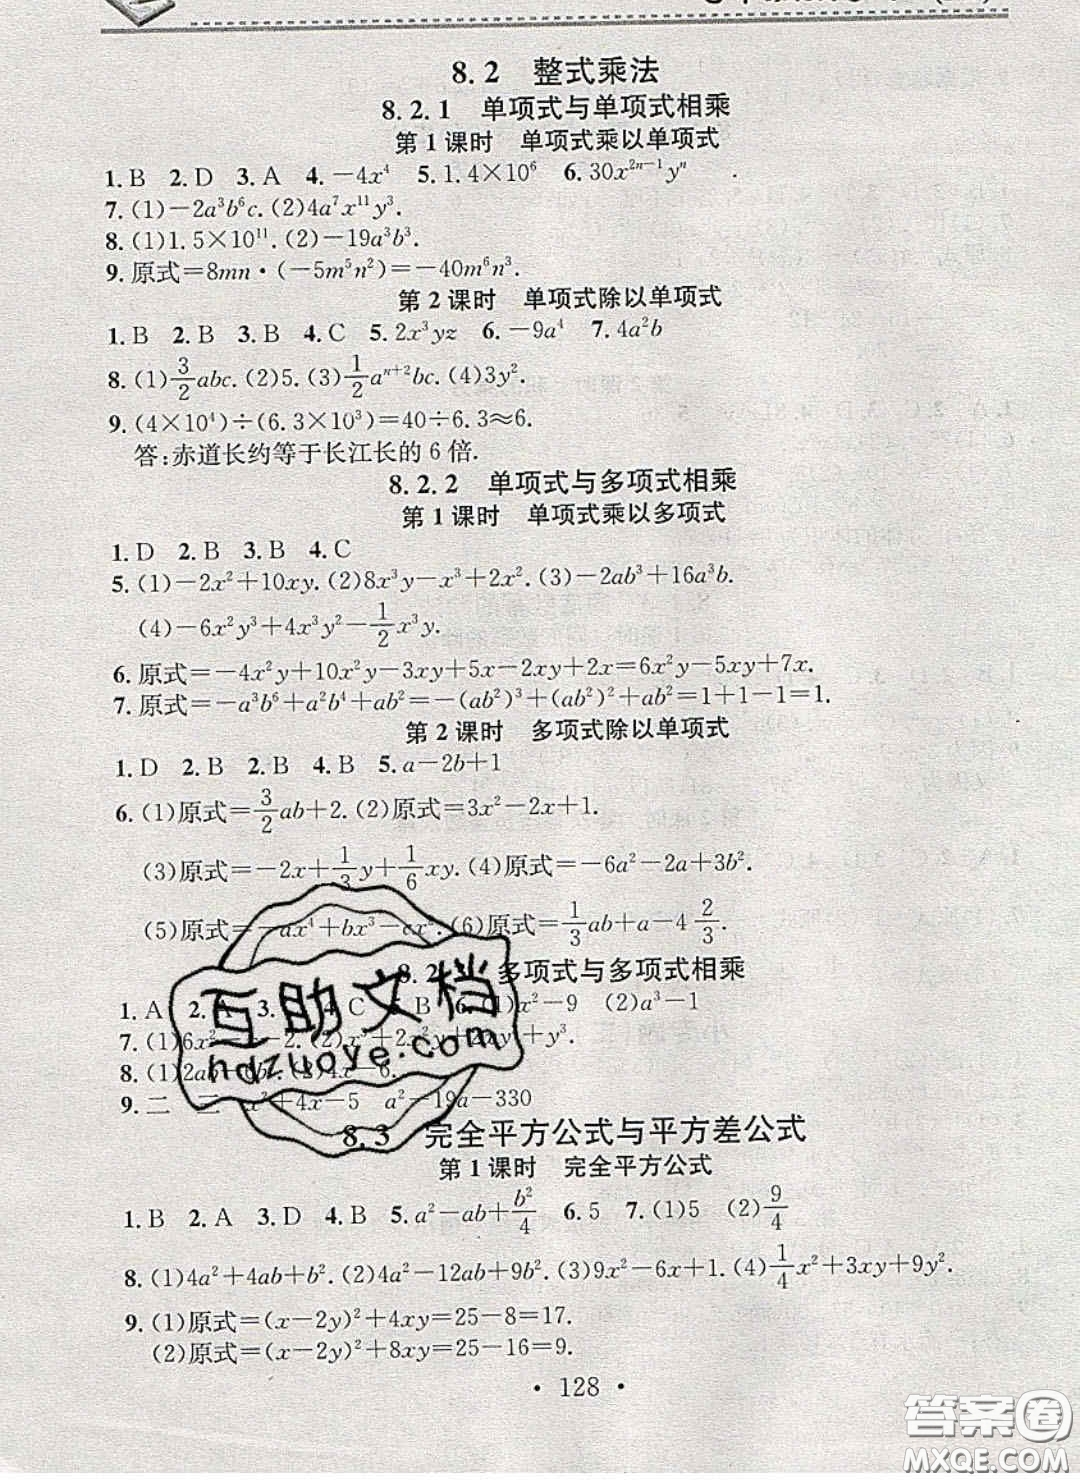 8.2 整式乘法
8.2.1 单项式与单项式相乘
第1课时 单项式乘以单项式
1.B 2.D 3.A 4.-4x⁴ 5.1.4×10⁶ 6.30x²ⁿ⁻¹yⁿ
7.(1)-2a³b⁶c.(2)4a⁷x¹¹y³.
8.(1)1.5×10¹¹.(2)-19a³b³.
9.原式=8mn·(-5m⁵n²)=-40m⁶n³.
第2课时 单项式除以单项式
1.B 2.B 3.B 4.C 5.2x³yz 6.-9a⁴ 7.4a²b
8.(1)3/2abc.(2)5.(3)1/2aⁿ⁺²bc.(4)3y².
9.(4×10⁴)÷(6.3×10³)=40÷6.3≈6.
答:赤道长约等于长江长的6倍.
8.2.2 单项式与多项式相乘
第1课时 单项式乘以多项式
1.D 2.B 3.B 4.C
5.(1)-2x²+10xy.(2)8x³y-x³+2x².(3)-2ab³+16a³b.
(4)-6x²y³+4x³y²-1/2x³y.
6.原式=-4x²y+10x²y-3xy+5x-2xy+2x=6x²y-5xy+7x.
7.原式=-a³b⁶+a²b⁴+ab²=-(ab²)³+(ab²)²+ab²=1+1-1=1.
第2课时 多项式除以单项式
1.D 2.B 2.B 4.B 5.a-2b+1
6.(1)原式=3/2ab+2.(2)原式=3x²-2x+1.
(3)原式=-2x+1/3y+1/6xy.(4)原式=-6a²-2a+3b².
(5)原式=-ax⁴+bx³-cx².(6)原式=1/3ab+a-4 2/3.
8.2 多项式与多项式相乘
1.A 2.A 3. 4.C 5.B 6.(1)x²-9 (2)a³-1
7.(1)6x² -2.(2)x³+2x²y+2xy²+y³.
8.(1)2ab (2)4x-6.
9.二 三 x²+4x-5 a²-19a-330
8.3 完全平方公式与平方差公式
第1课时 完全平方公式
1.B 2.A 3.D 4.B 5.a²-ab+b²/4 6.5 7.(1)5 (2)9/4
8.(1)4a²+4ab+b².(2)4a²-12ab+9b².(3)9x²-6x+1.(4)1/4x²+3xy+9y².
9.(1)原式=(x-2y)²+4xy=25-8=17.
(2)原式=(x-2y)²+8xy=25-16=9.
·128·
互助文档
hdzuoye.com
答案圈
MXQE.COM